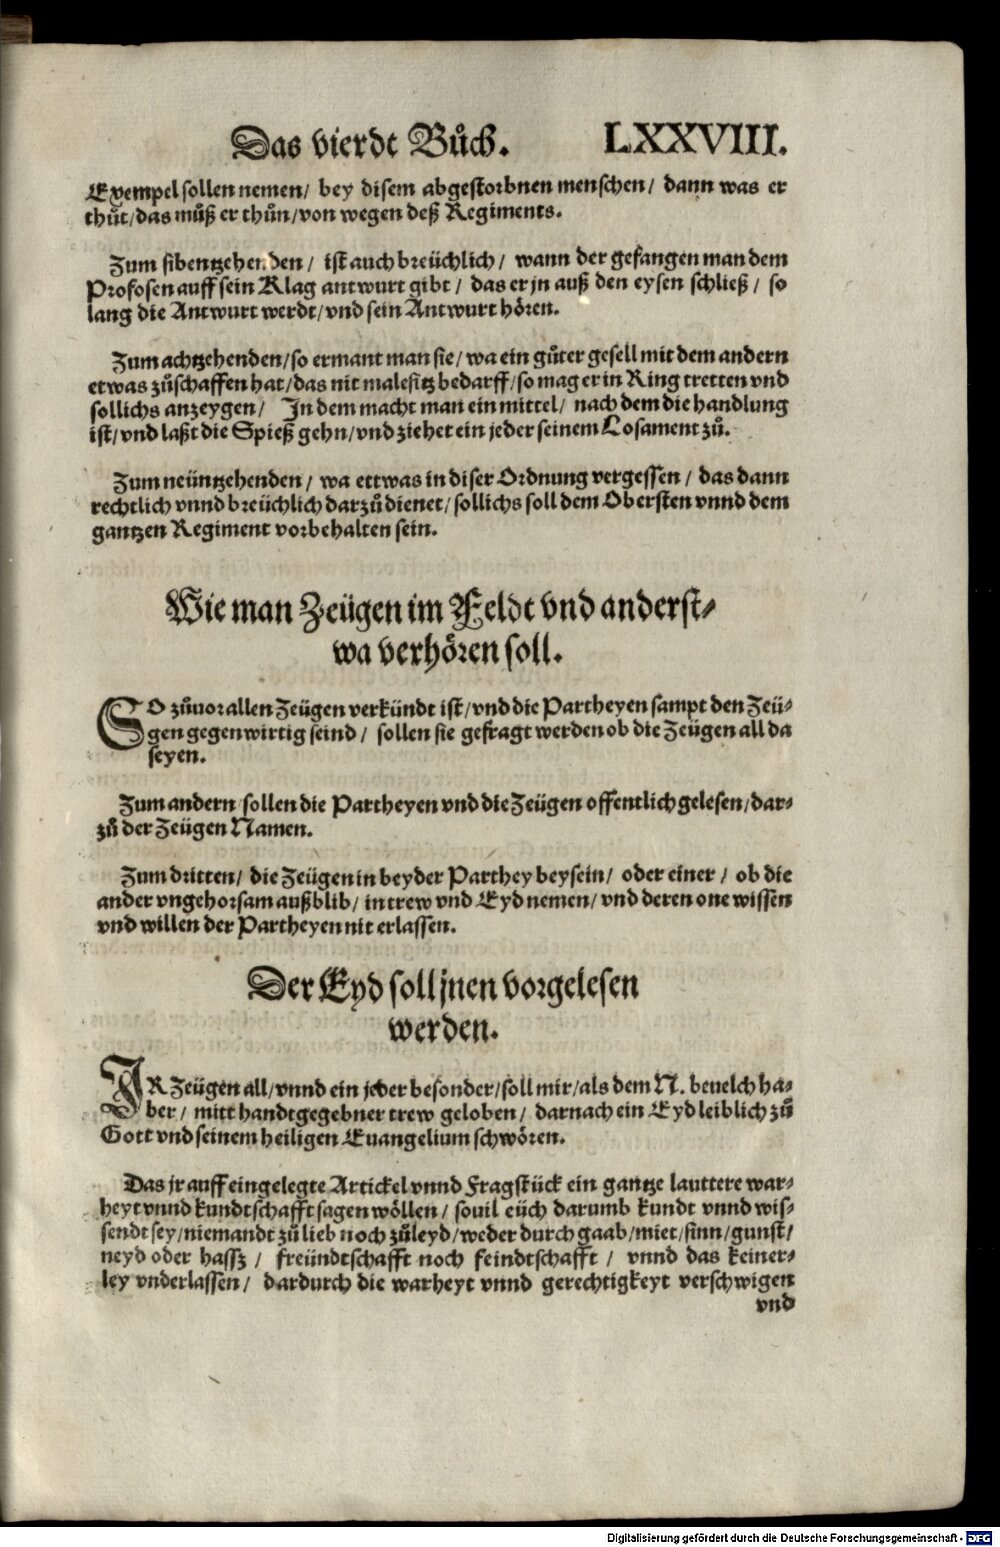 Das vierdt Bůch. LXXVIII.
Exempel sollen nemen / bey disem abgestorbnen menschen / dann was er
thůt / das můß er thůn / von wegen deß Regiments.
Zum sibentzehenden / ist auch breüchlich / wann der gefangen man dem
Profosen auff sein Klag antwurt gibt / das er jn auß den eysen schließ / so
lang die Antwurt werdt / vnd sein Antwurt hören.
Zum achtzehenden / so ermant man sie / wa ein gůter gesell mit dem andern
etwas zůschaffen hat / das nit malefitz bedarff / so mag er in Ring tretten vnd
sollichs anzeygen / In dem macht man ein mittel / nach dem die handlung
ist / vnd laßt die Spieß gehn / vnd ziehet ein jeder seinem Losament zů.
Zum neüntzehenden / wa ettwas in diser Ordnung vergessen / das dann
rechtlich vnnd breüchlich darzů dienet / sollichs soll dem Obersten vnnd dem
gantzen Regiment vorbehalten sein.
Wie man Zeügen im Feldt vnd anderst⸗
wa verhören soll.
SO zůuor allen Zeügen verkündt ist / vnd die Partheyen sampt den Zeü⸗
gen gegenwirtig seind / sollen sie gefragt werden ob die Zeügen all da
seyen.
Zum andern sollen die Partheyen vnd die Zeügen offentlich gelesen / dar⸗
zů der Zeügen Namen.
Zum dritten / die Zeügen in beyder Parthey beysein / oder einer / ob die
ander vngehorsam außblib / in trew vnd Eyd nemen / vnd deren one wissen
vnd willen der Partheyen nit erlassen.
Der Eyd soll jnen vorgelesen
werden.
IR Zeügen all / vnnd ein jeder besonder / soll mir / als dem N. beuelch ha⸗
ber / mitt handtgegebner trew geloben / darnach ein Eyd leiblich zů
Gott vnd seinem heiligen Euangelium schwören.
Das jr auff eingelegte Artickel vnnd Fragstück ein gantze lauttere war⸗
heyt vnnd kundtschafft sagen wöllen / souil eüch darumb kundt vnnd wis⸗
sendt sey / niemandt zů lieb noch zůleyd / weder durch gaab / miet / sinn / gunst /
neyd oder hassz / freündtschafft noch feindtschafft / vnnd das keiner⸗
ley vnderlassen / dardurch die warheyt vnnd gerechtigkeyt verschwigen
vnd
Digitalisierung gefördert durch die Deutsche Forschungsgemeinschaft - DFG